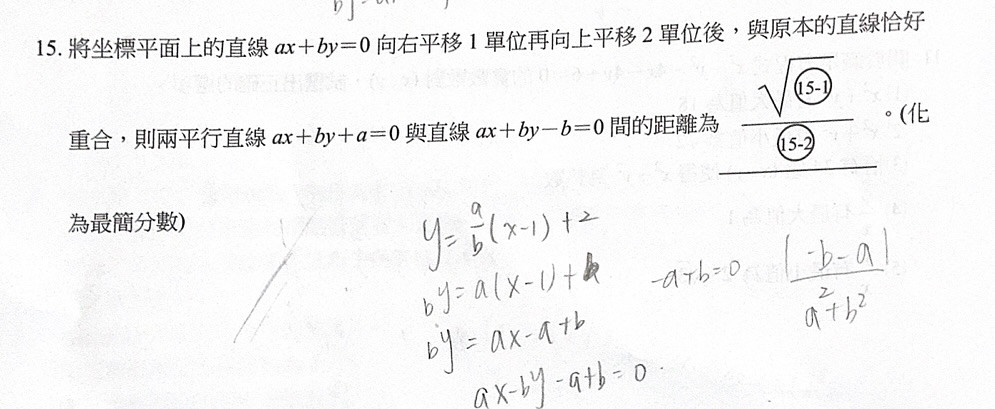 15. 將坐標平面上的直線 ax+by=0 向右平移 1 單位再向上平移 2 單位後，與原本的直線恰好
重合，則兩平行直線 ax+by+a=0 與直線 ax+by−b=0 間的距離為 √(15-1) / (15-2) 。(化
為最簡分數)
y = a/b (x-1) + 2
by = a(x-1) + b
by = ax - a + b
ax - by - a + b = 0 .
-a+b=0
|-b-a| / a²+b²